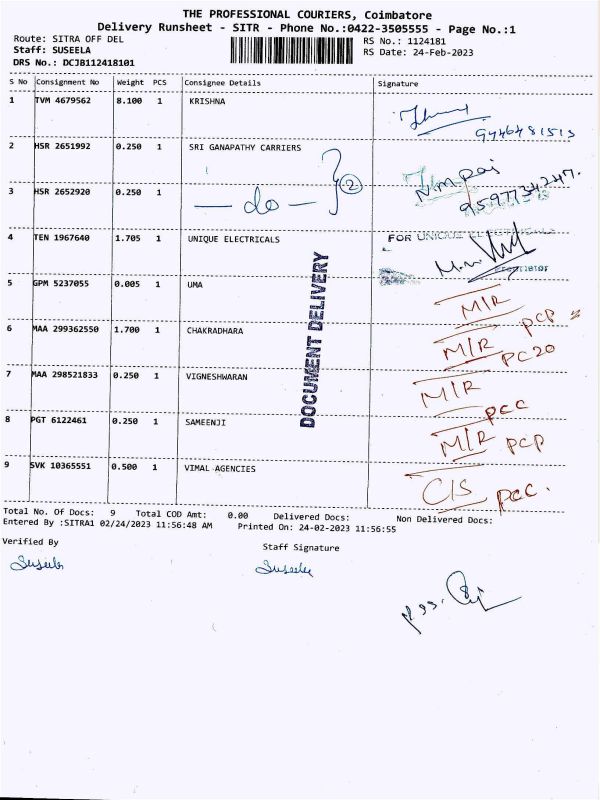 THE PROFESSIONAL COURIERS, Coimbatore
Delivery Runsheet - SITR - Phone No.:0422-3505555 - Page No.:1
Route: SITRA OFF DEL
RS No.: 1124181
Staff: SUSEELA
RS Date: 24-Feb-2023
DRS No.: DCJB112418101
S No Consignment No Weight PCS Consignee Details Signature
1 TVM 4679562 8.100 1 KRISHNA
9446481513
2 HSR 2651992 0.250 1 SRI GANAPATHY CARRIERS
2
3 HSR 2652920 0.250 1 — do —
9597734247.
4 TEN 1967640 1.705 1 UNIQUE ELECTRICALS FOR UNIQUE ELECTRICALS
Proprietor
5 GPM 5237055 0.005 1 UMA M/R PCP
6 MAA 299362550 1.700 1 CHAKRADHARA M/R PC20
7 MAA 298521833 0.250 1 VIGNESHWARAN M/R PCC
8 PGT 6122461 0.250 1 SAMEENJI M/R PCP
9 SVK 10365551 0.500 1 VIMAL AGENCIES C/S PCC.
DOCUMENT DELIVERY
Total No. Of Docs: 9 Total COD Amt: 0.00 Delivered Docs: Non Delivered Docs:
Entered By :SITRA1 02/24/2023 11:56:48 AM Printed On: 24-02-2023 11:56:55
Verified By
Staff Signature
Suseela
Suseela